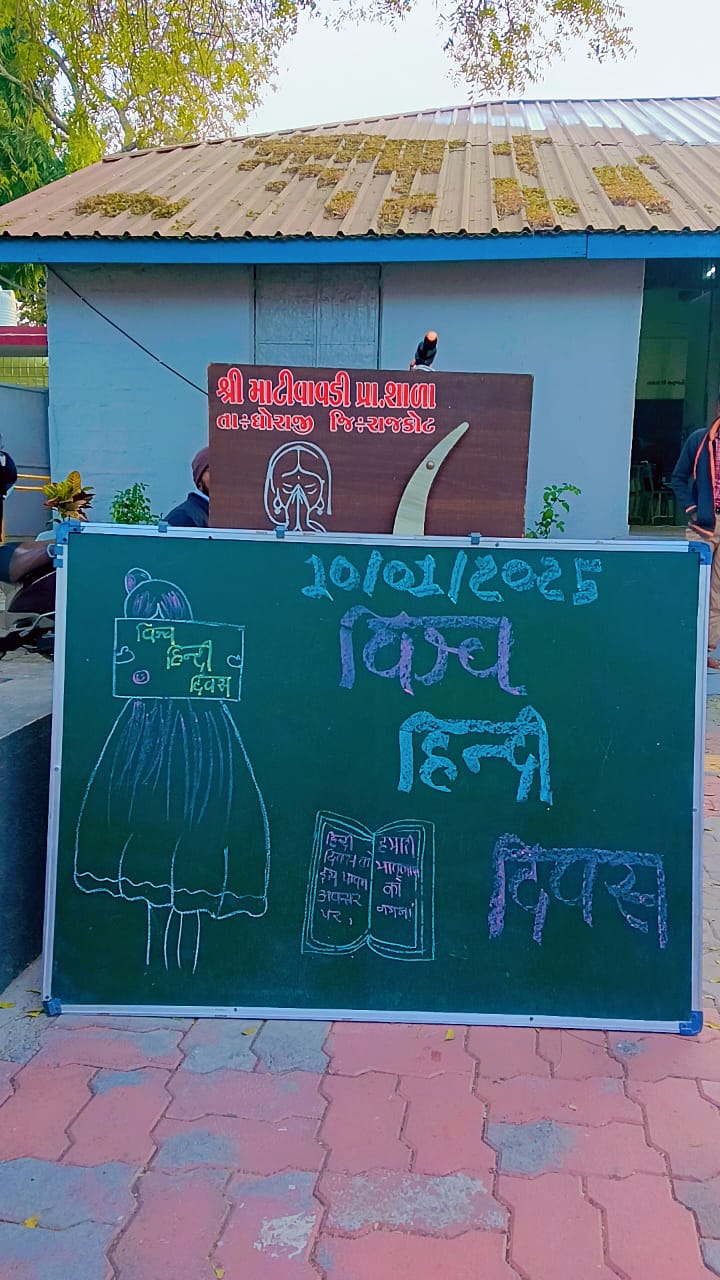 શ્રી માટીવાવડી પ્રા.શાળા
તા÷ધોરાજી જિ÷રાજકોટ
10/01/2025
विश्व
हिन्दी
दिवस
विश्व
हिन्दी
दिवस
हिन्दी
दिवस के
इस पावन
अवसर
पर,
हमारी
मातृभाषा
को